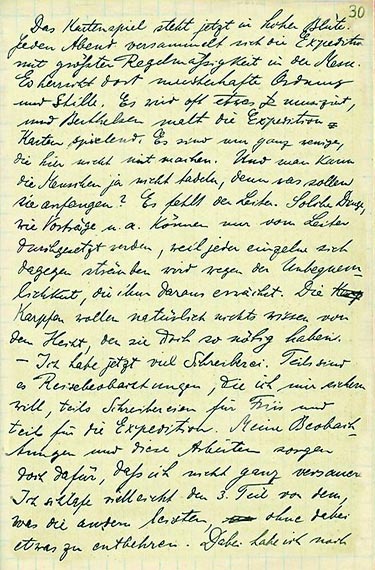 30
Das Kartenspiel steht jetzt in hoher Blüte.
Jeden Abend versammelt sich die Expedition
mit größter Regelmäßigkeit in der Mess.
Es herrscht dort musterhafte Ordnung
und Stille. Es wird oft etwas musiziert,
und Berthelsen malt die Expedition
Karten spielend. Es sind nur ganz wenige,
die hier nicht mit machen. Und man kann
die Menschen ja nicht tadeln, denn was sollen
sie anfangen? Es fehlt der Leiter. Solche Dinge,
wie Vorträge u. a. können nur vom Leiter
durchgesetzt werden, weil jeder einzelne sich
dagegen sträuben wird wegen der Unbequem-
lichkeit, die ihm daraus erwächst. Die
Karpfen wollen natürlich nichts wissen von
dem Hecht, den sie doch so nötig haben.
– Ich habe jetzt viel Schreiberei. Teils sind
es Reisebeobachtungen, die ich mir sichern
will, teils Schreibereien für Friis und
teil für die Expedition. Meine Beobach-
tungen und diese Arbeiten sorgen
doch dafür, daß ich nicht ganz versauere
Ich schlafe vielleicht den 3. Teil von dem,
was die andern leisten, ohne dabei
etwas zu entbehren. Dabei habe ich noch